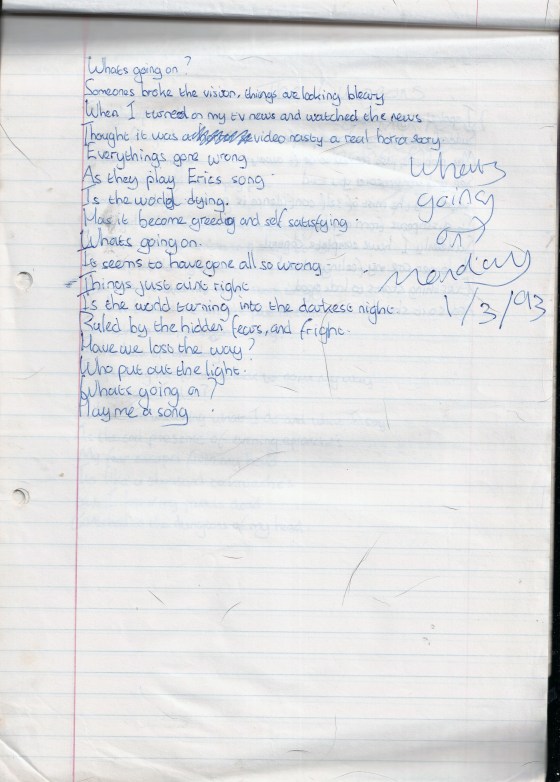 Whats going on?
Someones broke the vision, things are looking bleary
When I turned on my tv news and watched the news
Thought it was a video nasty a real horror story
Everythings gone wrong
As they play Erics song
Is the world dying.
Has it become greedy and self satisfying.
Whats going on.
Is seems to have gone all so wrong
Things just aint right
Is the world turning into the darkest night
Ruled by the hidden fears, and fright.
Have we loss the way?
Who put out the light.
Whats going on?
Play me a song
Whats
going
on?
Monday
1/3/93